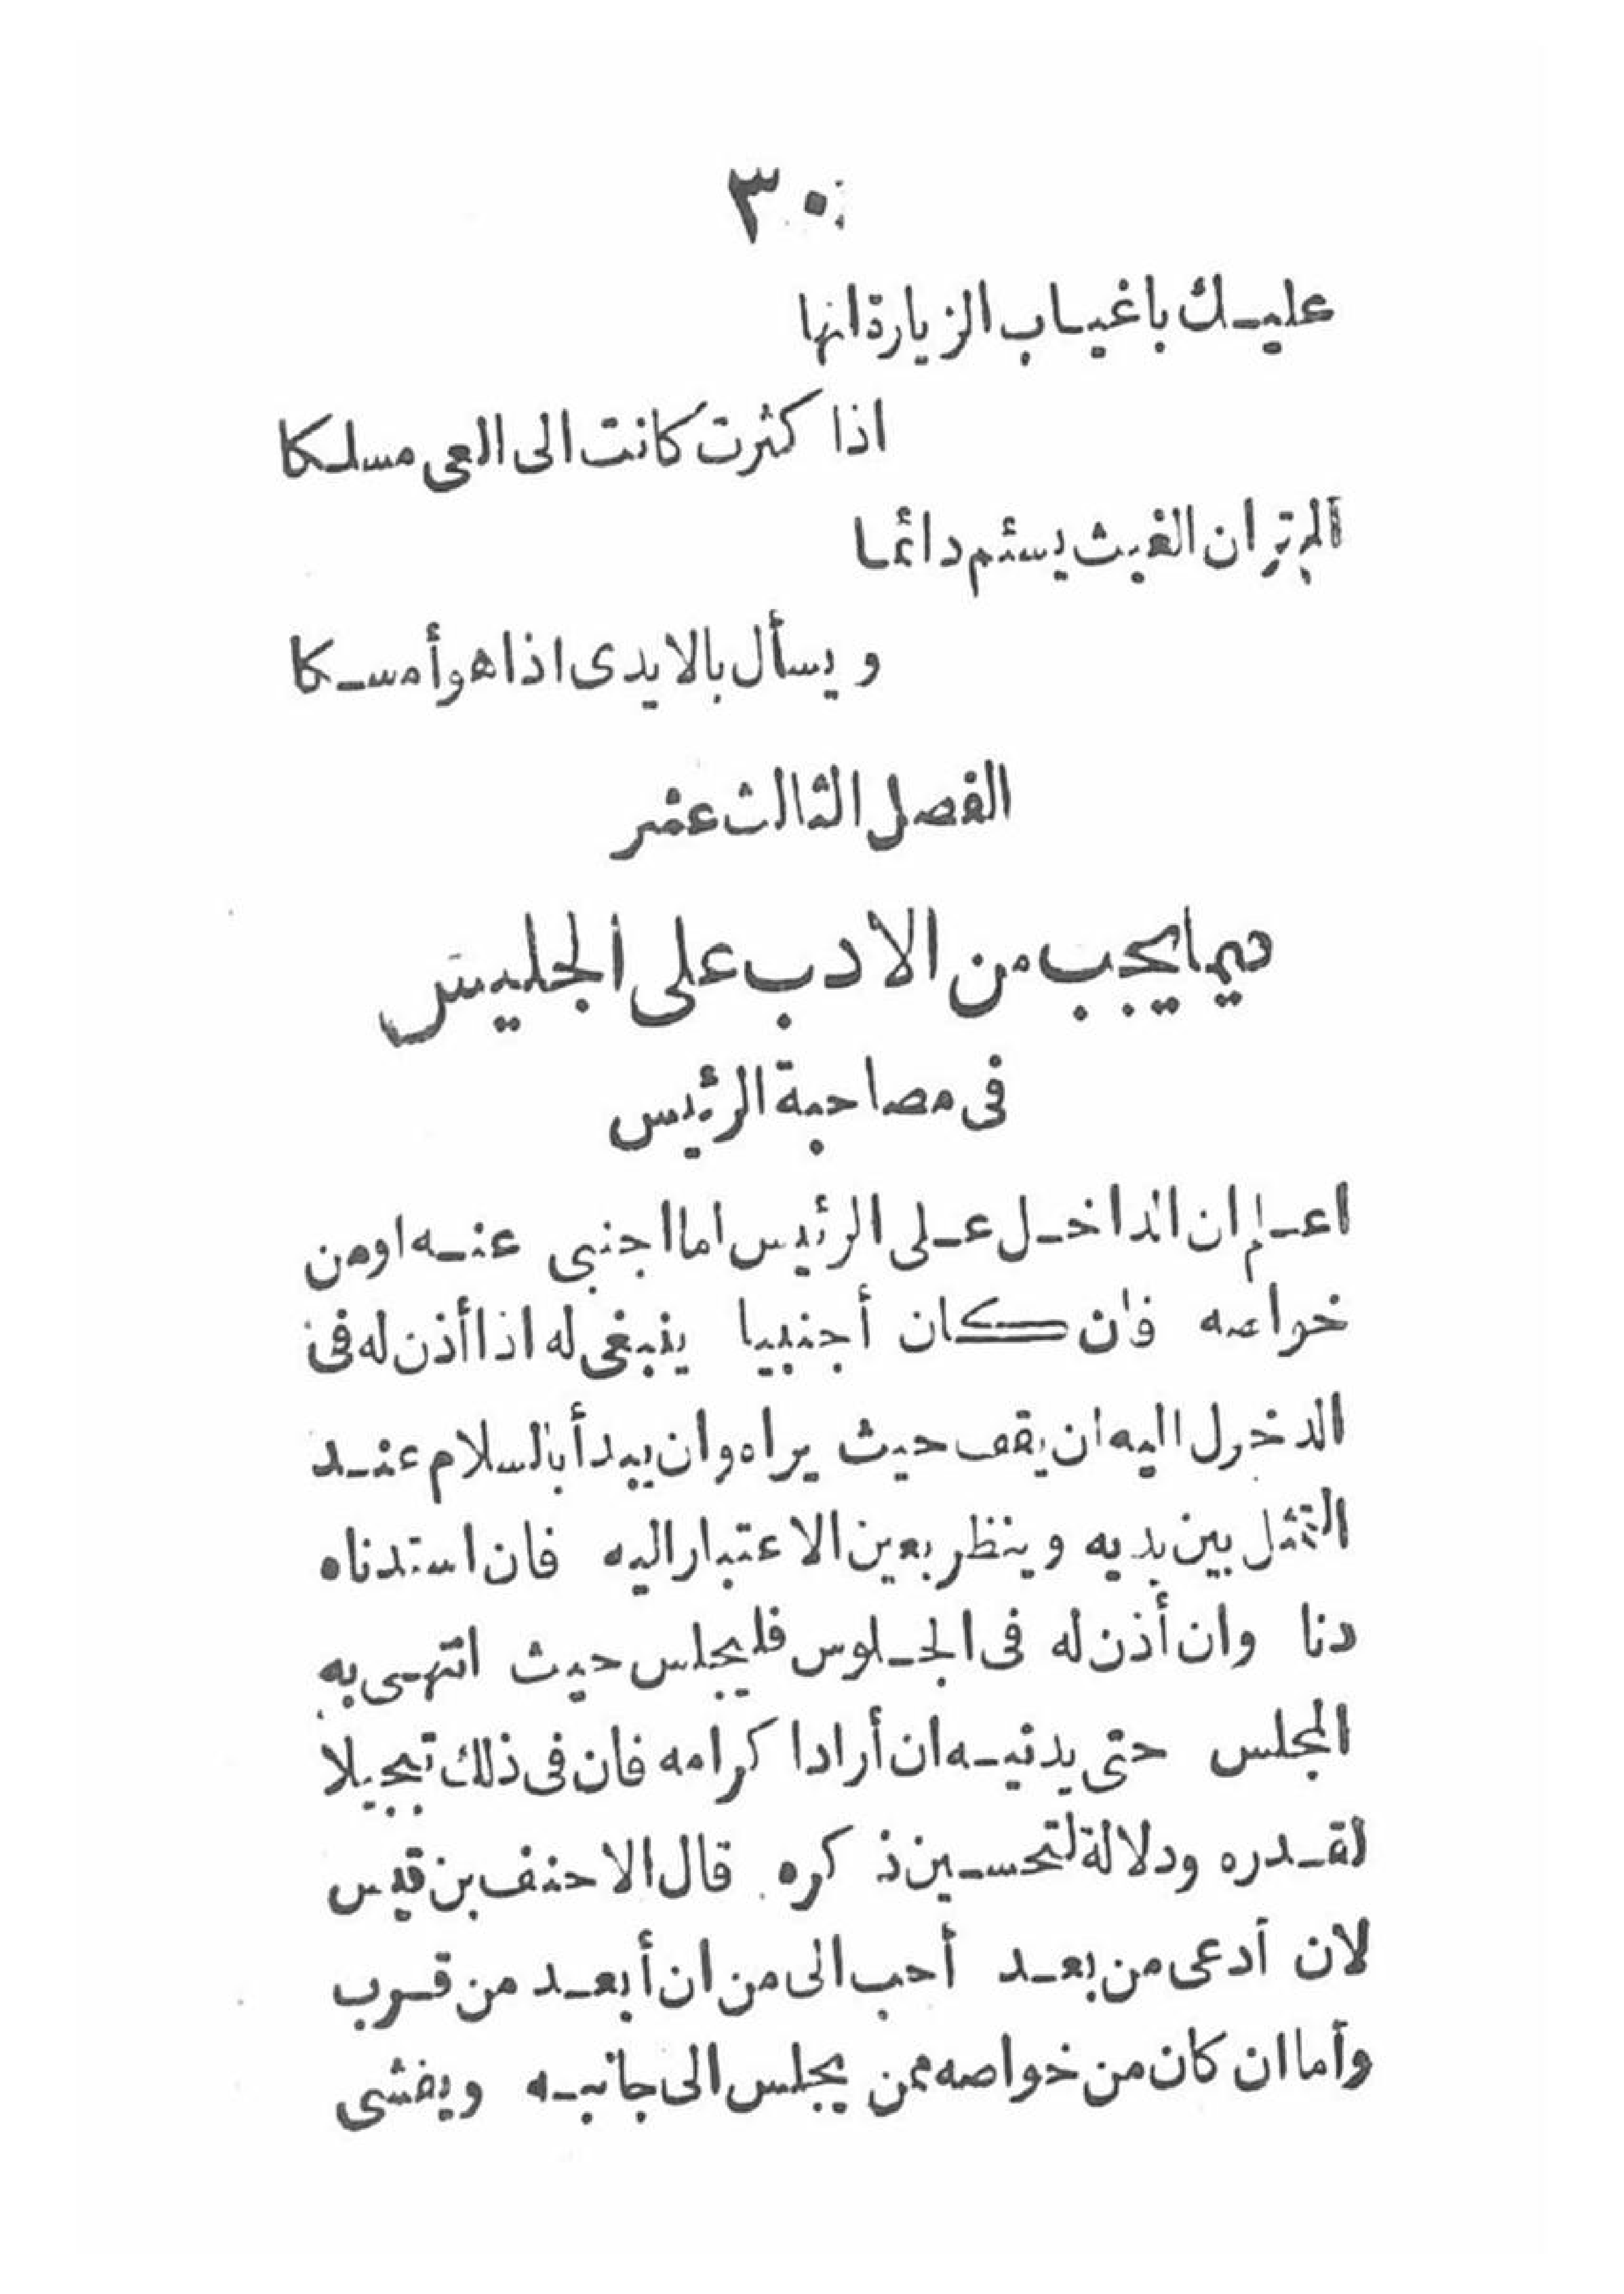 ٣٠
عليك باغياب الزيارة انها
اذا كثرت كانت الى العى مسلكا
ألم تر ان الغيث يسئم دائما
ويسأل بالايدى اذا هو أمسكا
الفصل الثالث عشر
فيما يجب من الادب على الجليس
فى مصاحبة الرئيس
اعلم ان الداخل على الرئيس اما اجنبى عنه اومن
خواصه فان كان أجنبيا ينبغى له اذا أذن له فى
الدخول اليه ان يقف حيث يراه وان يبدأ بالسلام عند
التمثل بين يديه وينظر بعين الاعتبار اليه فان استدناه
دنا وان أذن له فى الجلوس فليجلس حيث انتهى به
المجلس حتى يدنيه ان أراد اكرامه فان فى ذلك تبجيلا
لقدره ودلالة لتحسين ذكره قال الاحنف بن قيس
لان أدعى من بعد أحب الى من ان أبعد من قرب
وأما ان كان من خواصه ممن يجلس الى جانبه ويفشى